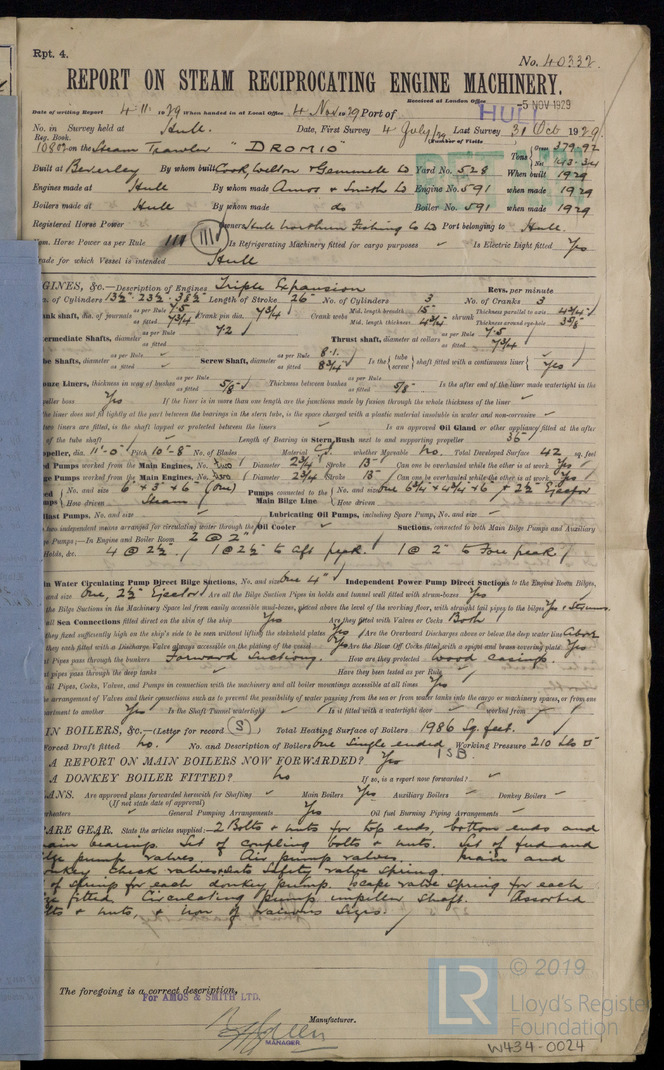 Rpt. 4.
No. 40332.
REPORT ON STEAM RECIPROCATING ENGINE MACHINERY.
Received at London Office -5 NOV 1929
Date of writing Report 4.11.1929 When handed in at Local Office 4 Nov 1929 Port of HULL
No. in Survey held at Hull. Date, First Survey 4 July/29 Last Survey 31 Oct 1929.
Reg. Book. (Number of Visits
on the Steam Trawler "DROMIO" Tons Gross 379.92 Net 143.34
Built at Beverley By whom built Cook, Welton & Gemmell Ld Yard No. 528 When built 1929
Engines made at Hull By whom made Amos & Smith Ld Engine No. 591 when made 1929
Boilers made at Hull By whom made do Boiler No. 591 when made 1929
Registered Horse Power Owners Hull Northern Fishing Co Ld Port belonging to Hull.
Nom. Horse Power as per Rule 111 111 Is Refrigerating Machinery fitted for cargo purposes ✓ Is Electric Light fitted Yes
rade for which Vessel is intended Hull
GINES, &c.—Description of Engines Triple Expansion Revs. per minute
o. of Cylinders 13½" 23½" 38½" Length of Stroke 26" No. of Cylinders 3 No. of Cranks 3
ank shaft, dia. of journals as per Rule 7.5 as fitted 7¾ Crank pin dia. 7¾ Crank webs Mid. length breadth 15" Mid. length thickness 4¾ shrunk Thickness parallel to axis 4¾ Thickness around eye-hole 3⅝
termediate Shafts, diameter as per Rule 7.2 as fitted Thrust shaft, diameter at collars as per Rule 7.5 as fitted 7¾
ube Shafts, diameter as per Rule ✓ as fitted ✓ Screw Shaft, diameter as per Rule 8.1. as fitted 8¾ Is the tube screw shaft fitted with a continuous liner Yes
onze Liners, thickness in way of bushes as per Rule as fitted ⅝ Thickness between bushes as per Rule as fitted ⅝ Is the after end of the liner made watertight in the
peller boss Yes If the liner is in more than one length are the junctions made by fusion through the whole thickness of the liner ✓
the liner does not fit tightly at the part between the bearings in the stern tube, is the space charged with a plastic material insoluble in water and non-corrosive ✓
two liners are fitted, is the shaft lapped or protected between the liners ✓ Is an approved Oil Gland or other appliance fitted at the after
of the tube shaft ✓ Length of Bearing in Stern Bush next to and supporting propeller 36"
opeller, dia. 11'-0" Pitch 10'-8" No. of Blades Material whether Moveable No. Total Developed Surface 42 sq. feet
ed Pumps worked from the Main Engines, No. Two Diameter 2¾ Stroke 13" Can one be overhauled while the other is at work Yes
ge Pumps worked from the Main Engines, No. Two Diameter 2¾ Stroke 13" Can one be overhauled while the other is at work Yes
No. and size 6" × 3" × 6" (One) Pumps connected to the Main Bilge Line No. and size One 6¾ × 4¾ × 6" + 2½" Ejector
How driven Steam How driven
llast Pumps, No. and size ✓ Lubricating Oil Pumps, including Spare Pump, No. and size ✓
two independent means arranged for circulating water through the Oil Cooler ✓ Suctions, connected to both Main Bilge Pumps and Auxiliary
e Pumps;—In Engine and Boiler Room 2 @ 2"
Holds, &c. 4 @ 2½. 1 @ 2½ to aft peak. 1 @ 2" to Fore peak.
in Water Circulating Pump Direct Bilge Suctions, No. and size One 4" Independent Power Pump Direct Suctions to the Engine Room Bilges,
and size One, 2½" Ejector Are all the Bilge Suction Pipes in holds and tunnel well fitted with strum-boxes Yes
the Bilge Suctions in the Machinery Space led from easily accessible mud-boxes, placed above the level of the working floor, with straight tail pipes to the bilges Yes & Strums.
all Sea Connections fitted direct on the skin of the ship Yes Are they fitted with Valves or Cocks Both
they fixed sufficiently high on the ship's side to be seen without lifting the stokehold plates Yes Are the Overboard Discharges above or below the deep water line Above
they each fitted with a Discharge Valve always accessible on the plating of the vessel Yes Are the Blow Off Cocks fitted with a spigot and brass covering plate Yes
at Pipes pass through the bunkers Forward Suctions. How are they protected Wood casings.
at pipes pass through the deep tanks ✓ Have they been tested as per Rule ✓
all Pipes, Cocks, Valves, and Pumps in connection with the machinery and all boiler mountings accessible at all times Yes
he arrangement of Valves and their connections such as to prevent the possibility of water passing from the sea or from water tanks into the cargo or machinery spaces, or from one
partment to another Yes Is the Shaft Tunnel watertight ✓ Is it fitted with a watertight door ✓ worked from ✓
IN BOILERS, &c.—(Letter for record (S) ) Total Heating Surface of Boilers 1986 Sq. feet.
Forced Draft fitted No. No. and Description of Boilers One Single ended Working Pressure 210 Lbs □
1SB
A REPORT ON MAIN BOILERS NOW FORWARDED? Yes
A DONKEY BOILER FITTED? No If so, is a report now forwarded? ✓
ANS. Are approved plans forwarded herewith for Shafting ✓ Main Boilers Yes Auxiliary Boilers ✓ Donkey Boilers ✓
(If not state date of approval)
erheaters ✓ General Pumping Arrangements Yes Oil fuel Burning Piping Arrangements ✓
ARE GEAR. State the articles supplied:— 2 Bolts & nuts for top ends, bottom ends and
main bearings. Set of coupling bolts & nuts. Set of feed and
ilge pump valves. Air pump valves. Main and
onkey check valves & seats Safety valve spring.
of springs for each donkey pump. Escape valve spring for each
fitted. Circulating pump impeller shaft. Assorted
lts & nuts, & iron of various sizes.
The foregoing is a correct description,
For AMOS & SMITH LTD.
Manufacturer.
MANAGER
LR © 2019
Lloyd's Register
Foundation
W434-0024